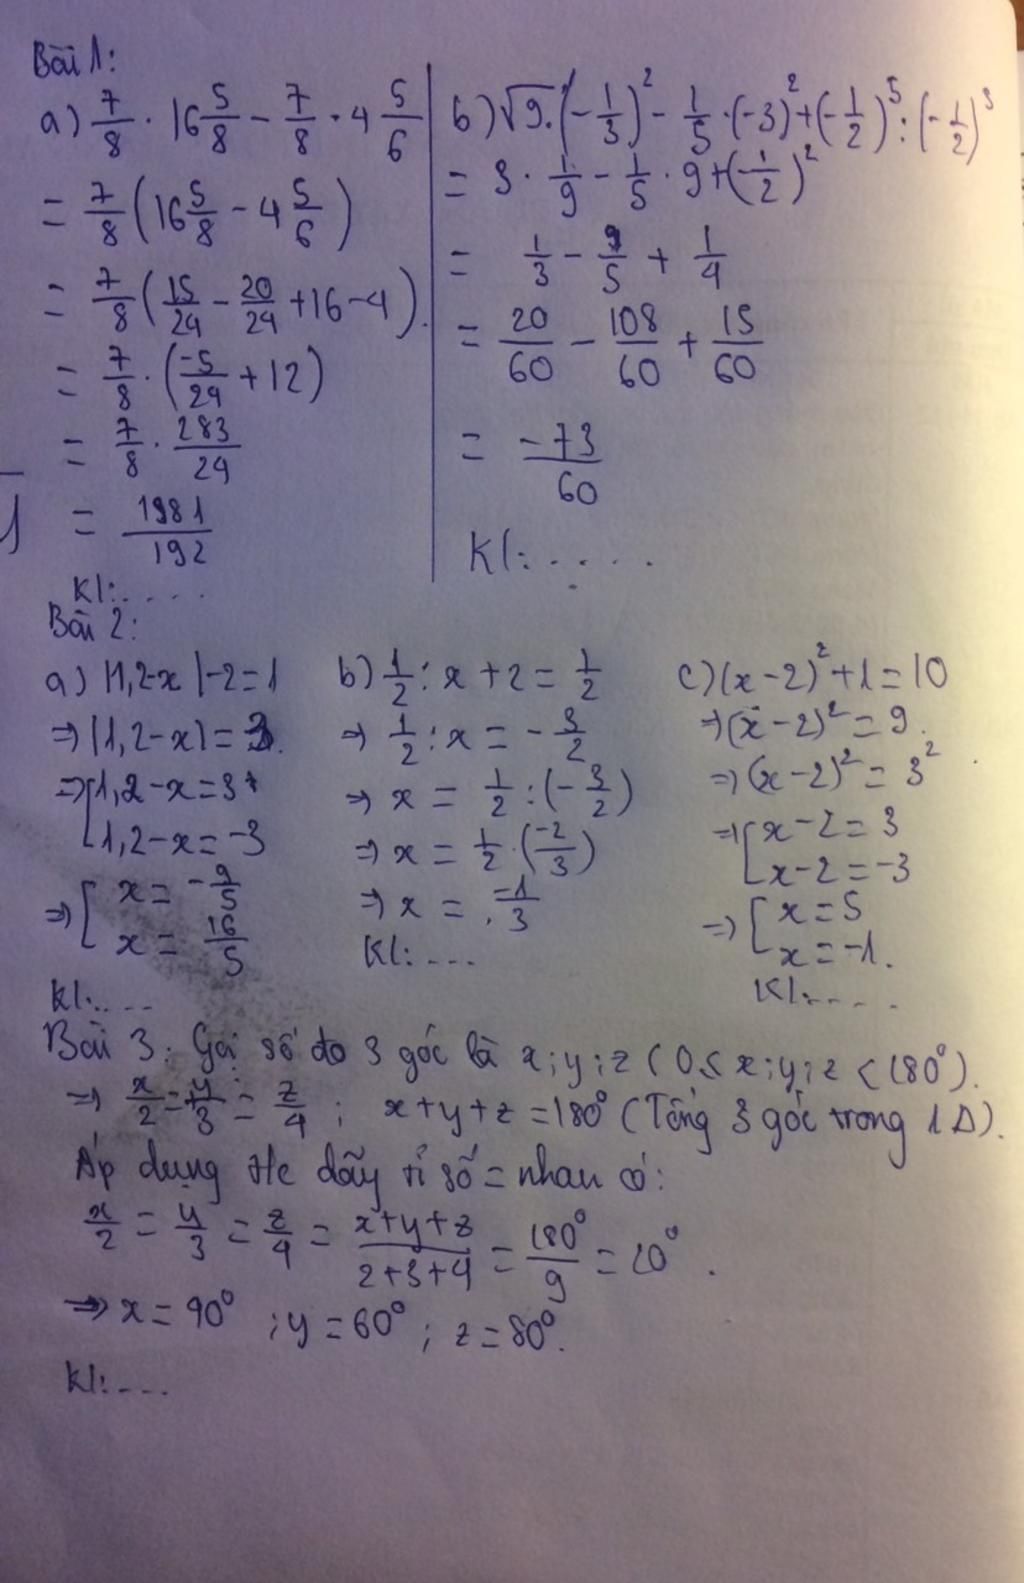 Bài 1:
a) 7/8 . 16 5/8 - 7/8 . 4 5/6
= 7/8 (16 5/8 - 4 5/6)
= 7/8 (15/24 - 20/24 + 16 - 4).
= 7/8 . (-5/24 + 12)
= 7/8 . 283/24
= 1981/192
Kl:....
b) √9 . (-1/3)² - 1/5 . (-3)² + (-1/2)⁵ : (-1/2)³
= 3 . 1/9 - 1/5 . 9 + (-1/2)²
= 1/3 - 9/5 + 1/4
= 20/60 - 108/60 + 15/60
= -73/60
Kl:.....
Bài 2:
a) |1,2-x|-2=1
⇒ |1,2-x| = 3.
⇒ [1,2-x=3
1,2-x=-3
⇒ [x = -9/5
x = 16/5
Kl:....
b) 1/2 : x + 2 = 1/2
⇒ 1/2 : x = -3/2
⇒ x = 1/2 : (-3/2)
⇒ x = 1/2 . (-2/3)
⇒ x = -1/3
Kl:...
c) (x-2)² + 1 = 10
⇒ (x-2)² = 9.
⇒ (x-2)² = 3²
⇒ [x-2 = 3
x-2 = -3
⇒ [x = 5
x = -1.
Kl:....
Bài 3: Gọi số đo 3 góc là x;y;z (0≤x;y;z<180°).
⇒ x/2 = y/3 = z/4 ; x+y+z = 180° (Tổng 3 góc trong 1Δ).
Áp dụng t/c dãy tỉ số = nhau có:
x/2 = y/3 = z/4 = (x+y+z)/(2+3+4) = 180°/9 = 20°.
⇒ x = 40° ; y = 60° ; z = 80°.
Kl:...